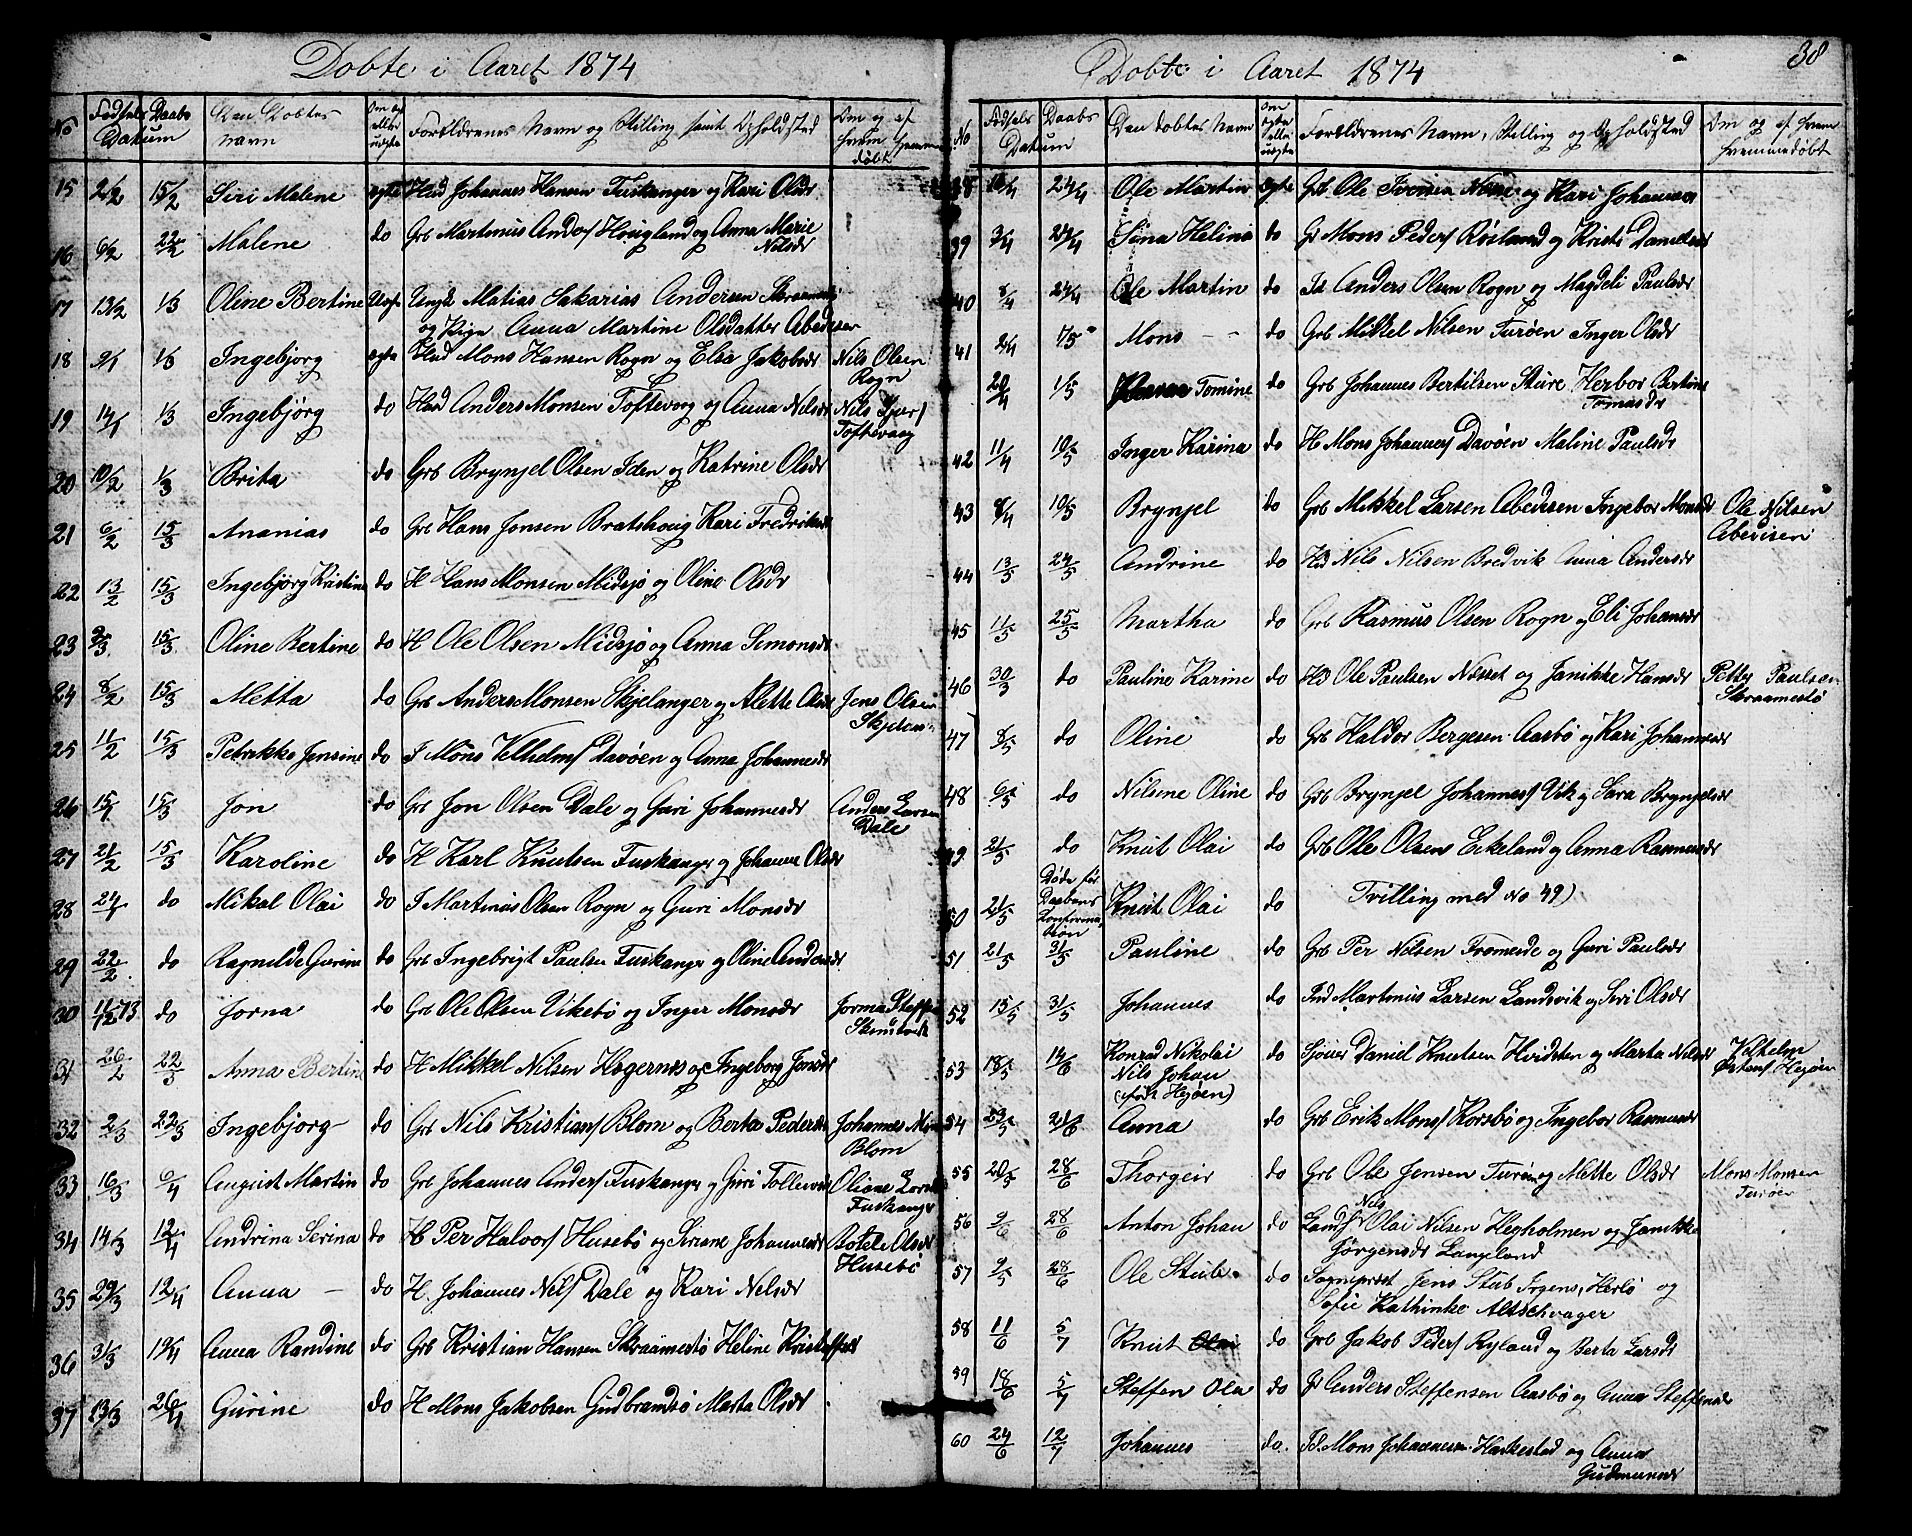 Dobte i Aaret 1874
No
Fødsels Daabs
Datum
Den Dobtes
navn
Om ægte
eller
uægte
Forældrenes Navn og Stilling samt Opholdsted
Om og af
hvem hjemme
døbt
15 2/2 15/2 Siri Malene ægte Hsd Johannes Hansen Fuskanger og Kari Olsdr
16 6/2 22/2 Malene do Grb Martinus Anders/ Haugland og Anna Marie
Nilsdr
17 13/2 1/3 Oline Bertine Uægte Ungk Matias Sakarias Andersen Skraamestø
og Pige Anna Martine Olsdatter Abedisen
18 9/1 1/3 Ingebjorg ægte Hsd Mons Hansen Rogn og Elsa Jakobsdr Nils Olsen
Rogn
19 14/1 1/3 Ingebjørg do Hsd Anders Monsen Toftevaag og Anna Nilsdr Nils
Toftevaag
20 10/2 1/3 Brita do Grb Brynjel Olsen Iden og Katrine Olsdr
21 6/2 15/3 Ananias do Grb Hans Jonsen Bratshoug Kari Fredriksdr
22 13/2 15/3 Ingebjørg Kristine do H Hans Monsen Midsjø og Oline Olsdr
23 2/3 15/3 Oline Bertine do H Ole Olsen Midsjø og Anna Simonsdr
24 8/2 15/3 Metta do Grb Anders Monsen Skjelanger og Alette Olsdr Jens Olsen
25 11/2 15/3 Petrikke Jensine do I Mons Velhelms/ Davøen og Anna Johannesdr
26 15/1 15/3 Jon do Grb Jon Olsen Dale og Guri Johannesdr Anders Larsen
Dale
27 21/2 15/3 Karoline do H Karl Knutsen Fuskanger og Johanna Olsdr
28 24/1 do Mikal Olai do I Martinus Olsen Rogn og Guri Monsdr
29 22/2 do Ragnilde Gurine do Grb Ingebrigt Paulsen Fuskanger og Oline Andersdr
30 11/12 73 do Jorna do Grb Ole Olsen Vikebø og Inger Monsdr Jorma
31 26/2 22/3 Anna Bertine do H Mikkel Nilsen Hogernes og Ingeborg Jonsdr
32 2/3 22/3 Ingebjorg do Grb Nils Kristians/ Blom og Berta Pedersdr Johannes
Blom
33 16/3 6/4 August Martin do Grb Johannes Anders/ Fuskanger og Guri Tollevsdr Oliane
Fuskanger
34 14/3 12/4 Andrina Serina do H Per Halvors/ Husebø og Siriane Johannesdr Botele Olsdr
Husebø
35 29/3 12/4 Anna do H. Johannes Nils/ Dale og Kari Nelsdr
36 31/3 19/4 Anna Randine do Grb Kristian Hansen Skraamestø Heline Kristoffersdr
37 13/3 26/4 Gurine do H Mons Jakobsen Gudbrandsø Marta Olsdr
Dobte i Aaret 1874
38
No
Fødsels Daabs
Datum
Den dobtes Navn
Om
ægte
eller
uægte
Forældrenes Navn, Stilling og Opholdsted
Om og af hvem
hjemmedøbt
38 24/4 Ole Martin ægte Grb Ole Iversen og Kari Johannesdr
39 3/4 24/4 Sina Helina do Gr Mons Peders/ Røsland og Kristi Danielsdr
40 8/4 24/4 Ole Martin do Id Anders Olsen Rogn og Magdeli Paulsdr
41 2/4 1/5 Mons do Grb Mikkel Nilsen Turøen Inger Olsdr
20/4 1/5 Tomine do Grb Johannes Bertilsen Sture Herbor Bertine
Tomasdr
42 11/4 10/5 Inger Karina do H Mons Johannes/ Davøen Maline Paulsdr
43 8/4 10/5 Brynjel do Grb Mikkel Larsen Abedisen Ingebor Monsdr Ole Nilsen
Abedisen
44 13/5 24/5 Andrine do Hsd Nils Nilsen Bredvik Anna Andersdr
45 11/5 25/5 Martha do Grb Rasmus Olsen Rogn og Eli Johansdr
46 30/3 do Pauline Karine do Hsd Ole Paulsen Nesset og Janikke Hansdr Petter Paulsen
Skraamestø
47 8/5 do Oline do Grb Haldor Bergesen Aasbø og Kari Johannesdr
48 6/5 do Nilsine Oline do Grb Brynjel Johannes/ Vik og Sara Brynjelsdr
49 21/5 do Knut Olai do Grb Ole Olsens Eikeland og Anna Rasmusdr
50 21/5 Døde før
Daabens
Konforma
tion Knut Olai do Tvilling med No 49)
51 21/5 31/5 Pauline do Grb Per Nilsen Fromeide og Guri Paulsdr
52 15/5 31/5 Johannes do Ind Martinus Larsen Landsvik og Siri Olsdr
53 18/5 14/6 Konrad Nikolai
Nils Johan
(født Hejøen) do Sjouer Daniel Knutsen Hvidsten og Marta Nilsdr Vilhelm
Østens/ Hejøen
54 23/5 21/6 Anna do Grb Erik Mons/ Korsbø og Ingebor Rasmusdr
55 20/5 28/6 Thorgeir do Grb Ole Jensen Turøen og Mette Olsdr Mons Monsen
Turøen
56 9/6 28/6 Anton Johan do Lands/ Nils Olai Nilsen Hegholmen og Janikke
Jørgensdr Langeland
57 9/5 28/6 Ole Stub do Sognepræst Jens Stub Irgens, Herlø og
Sofie Kathinke Altschvager
58 11/6 5/7 Knut Olai do Grb Jakob Peders/ Ryland og Berta Larsdr
59 18/6 5/7 Steffen Ola do Gr Anders Steffensen Aasbø og Anna Steffensdr
60 24/6 12/7 Johannes do. Id. Mons Johannesen Harkestad og Anna
Gudmunsdr